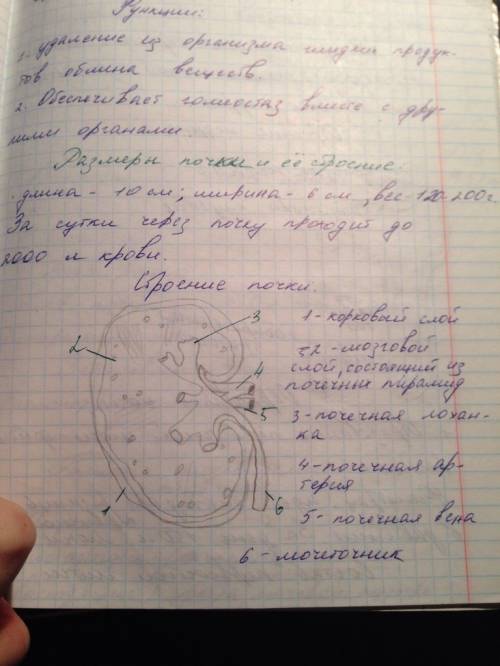 Функции:
1. удаление из организма жидких продук-
тов обмена веществ.
2. Обеспечивает гомеостаз вместе с дру-
гими органами.
Размеры почки и её строение.
длина - 10 см; ширина - 6 см, вес - 120-200г.
За сутки через почку проходит до
2000 л крови.
Строение почки.
1 - корковый слой
2 - мозговой
слой, состоящий из
почечных пирамид
3 - почечная лохан-
ка
4 - почечная ар-
терия
5 - почечная вена
6 - мочеточник
3
2
4
5
6
1